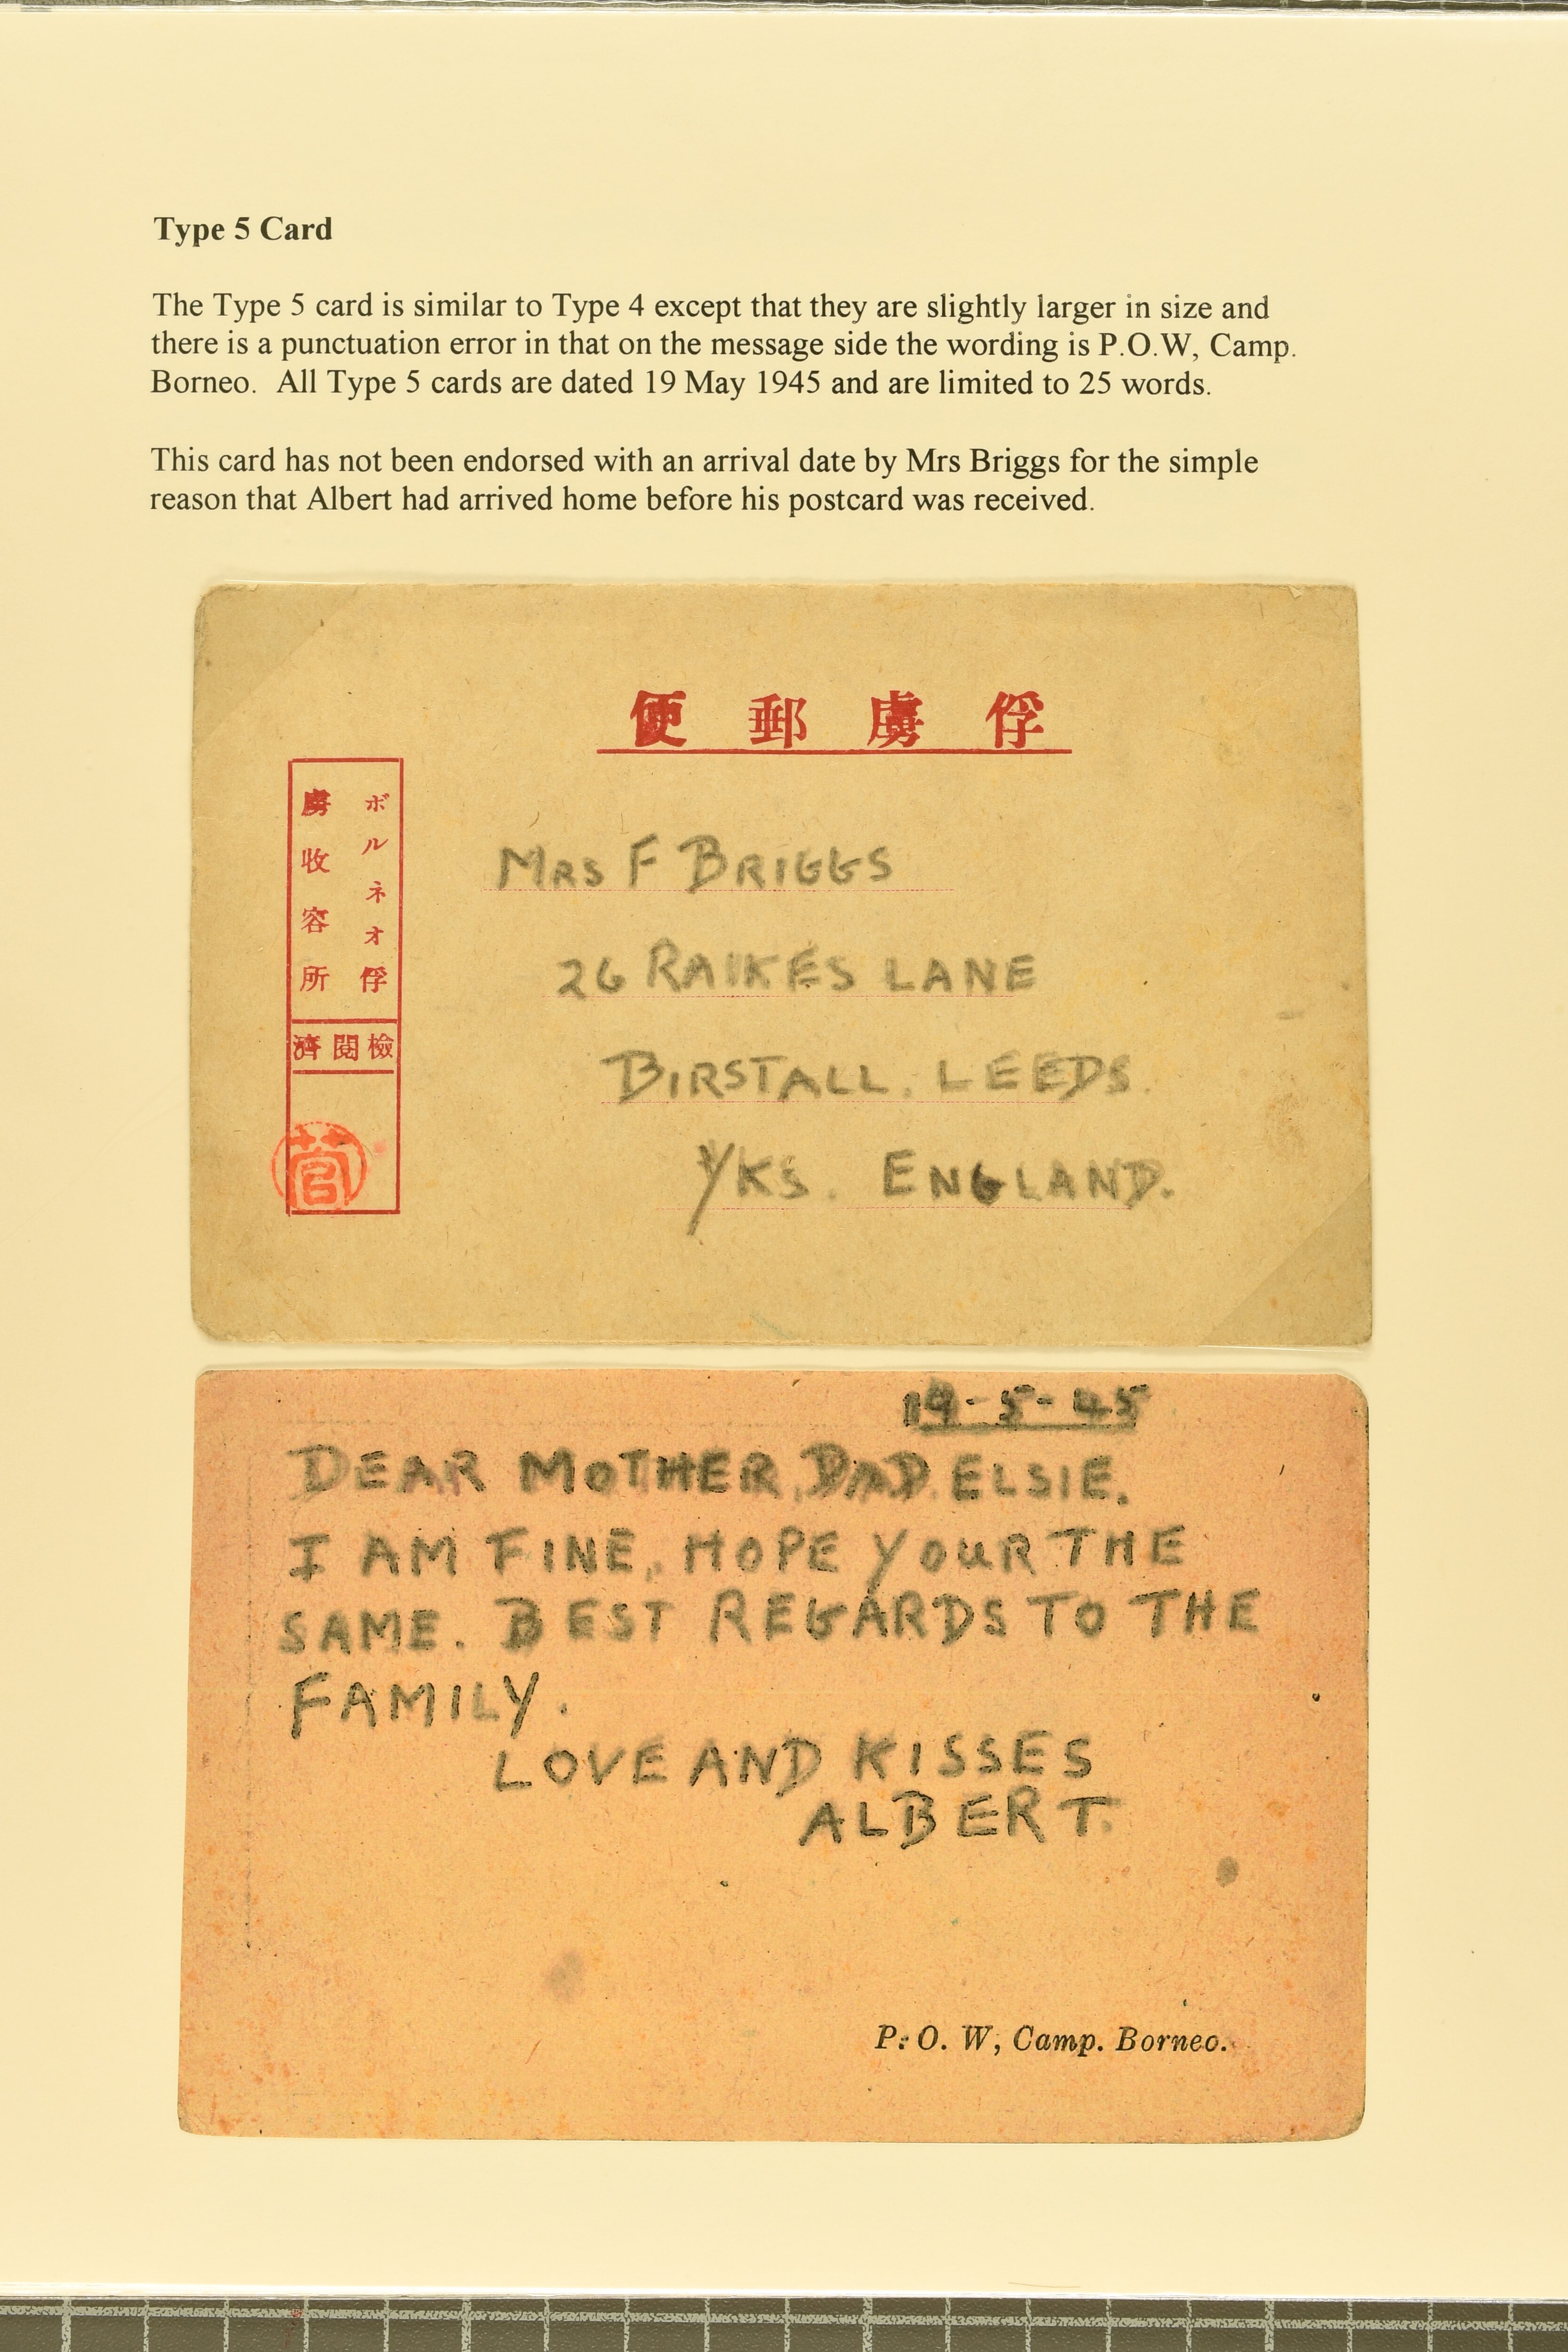 Type 5 Card
The Type 5 card is similar to Type 4 except that they are slightly larger in size and
there is a punctuation error in that on the message side the wording is P.O.W, Camp.
Borneo. All Type 5 cards are dated 19 May 1945 and are limited to 25 words.
This card has not been endorsed with an arrival date by Mrs Briggs for the simple
reason that Albert had arrived home before his postcard was received.
便郵虜俘
ボルネオ俘
虜收容所
濟閲檢
菅
MRS F BRIGGS
26 RAIKES LANE
BIRSTALL. LEEDS.
YKS. ENGLAND.
19-5-45
DEAR MOTHER, DAD, ELSIE.
I AM FINE, HOPE YOUR THE
SAME. BEST REGARDS TO THE
FAMILY.
LOVE AND KISSES
ALBERT.
P. O. W, Camp. Borneo.